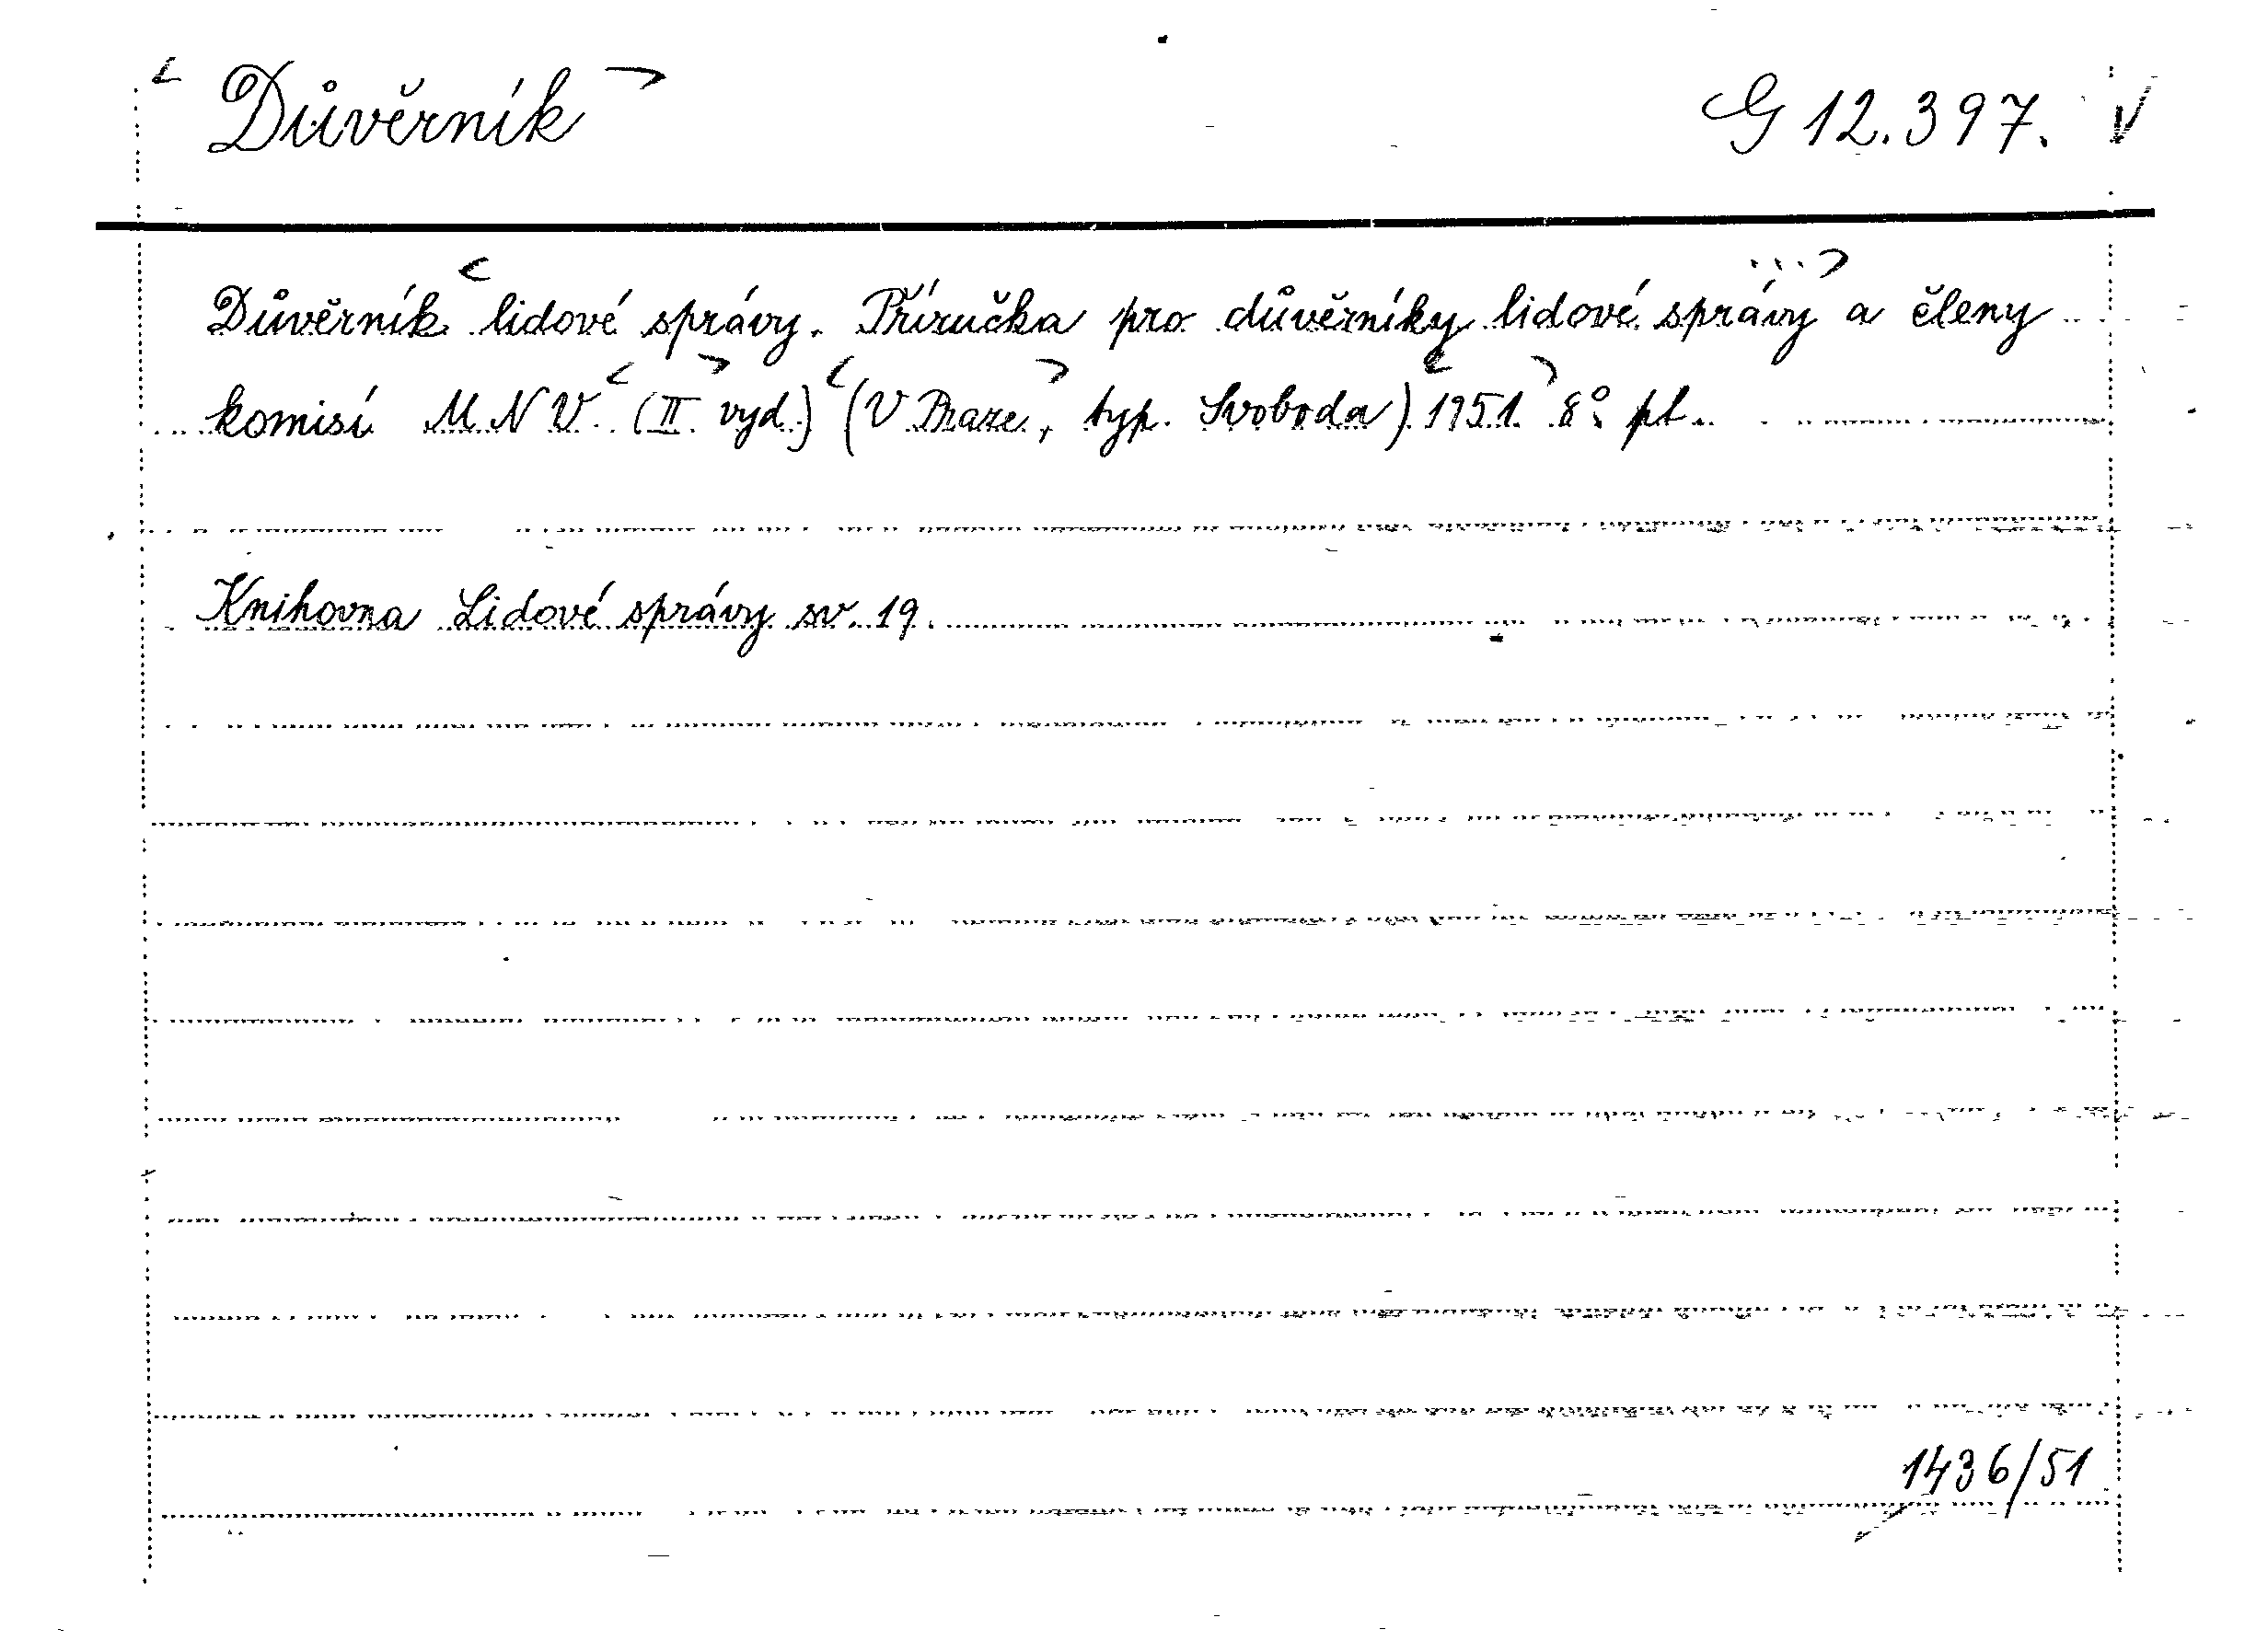 Důvěrník G 12.397.
Důvěrník lidové správy. Příručka pro důvěrníky lidové správy a členy
komisí M N V. (II. vyd.) (V Praze, typ. Svoboda) 1951. 8° pt.
Knihovna Lidové správy sv. 19.
1436/51